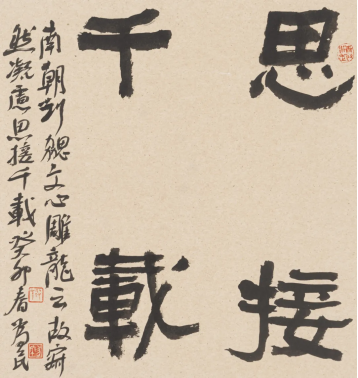 思接
千載
南朝刘勰文心雕龍云故寂
然凝慮思接千載癸卯春为民